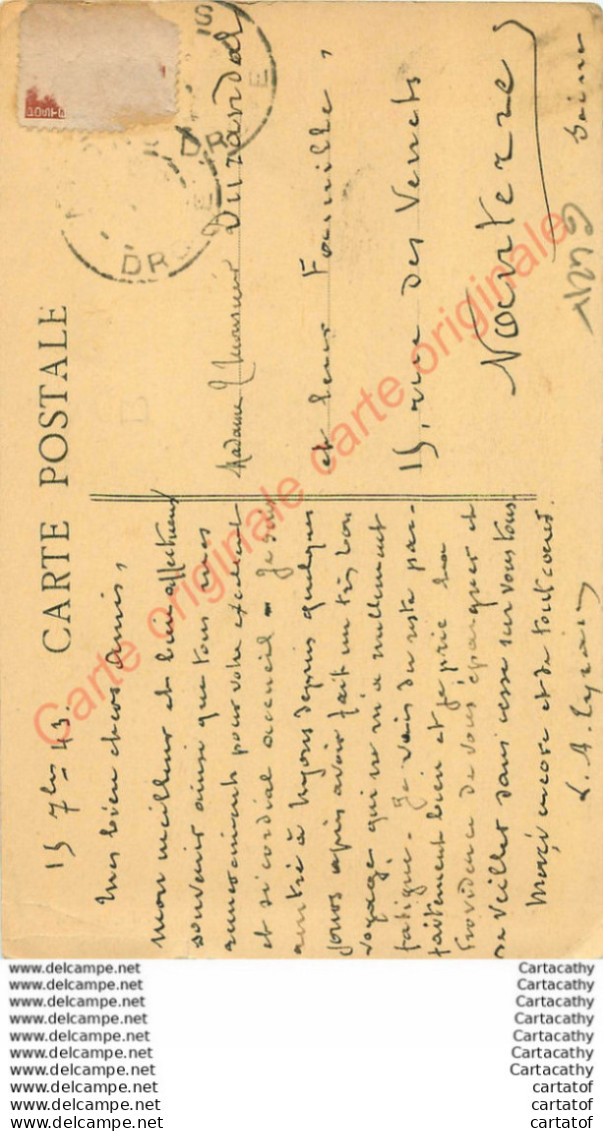 CARTE POSTALE
15 7bre 43.
Mes bien chers Amis,
mon meilleur et bien affectueux
souvenir ainsi que tous mes
remerciements pour votre excellent
et si cordial accueil - Je suis
rentré à Nyons depuis quelques
jours après avoir fait un très bon
voyage qui ne m'a nullement
fatigué. Je vais du reste par-
faitement bien et je prie la
Providence de vous épargner et
de veiller sans cesse sur vous tous.
Merçi encore et de tout coeur.
Madame & Monsieur Durandal
et leur Famille,
15, rue des Venets
Nanterre
Seine
DR
DR
POSTES
Carte originale carte originale
www.delcampe.net Cartacathy
www.delcampe.net Cartacathy
www.delcampe.net Cartacathy
www.delcampe.net Cartacathy
www.delcampe.net Cartacathy
www.delcampe.net Cartacathy
www.delcampe.net Cartacathy
www.delcampe.net cartatof
www.delcampe.net cartatof
www.delcampe.net cartatof